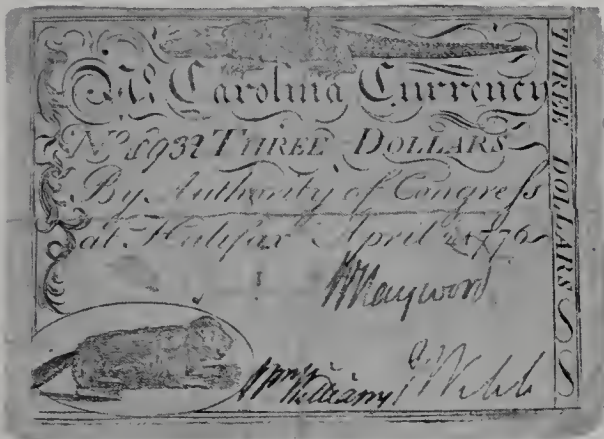 No. Carolina Currency
No. 8932 THREE DOLLARS
By Authority of Congress
at Halifax April 2, 1776
W Haywood
Williams
J Webb
THREE DOLLARS